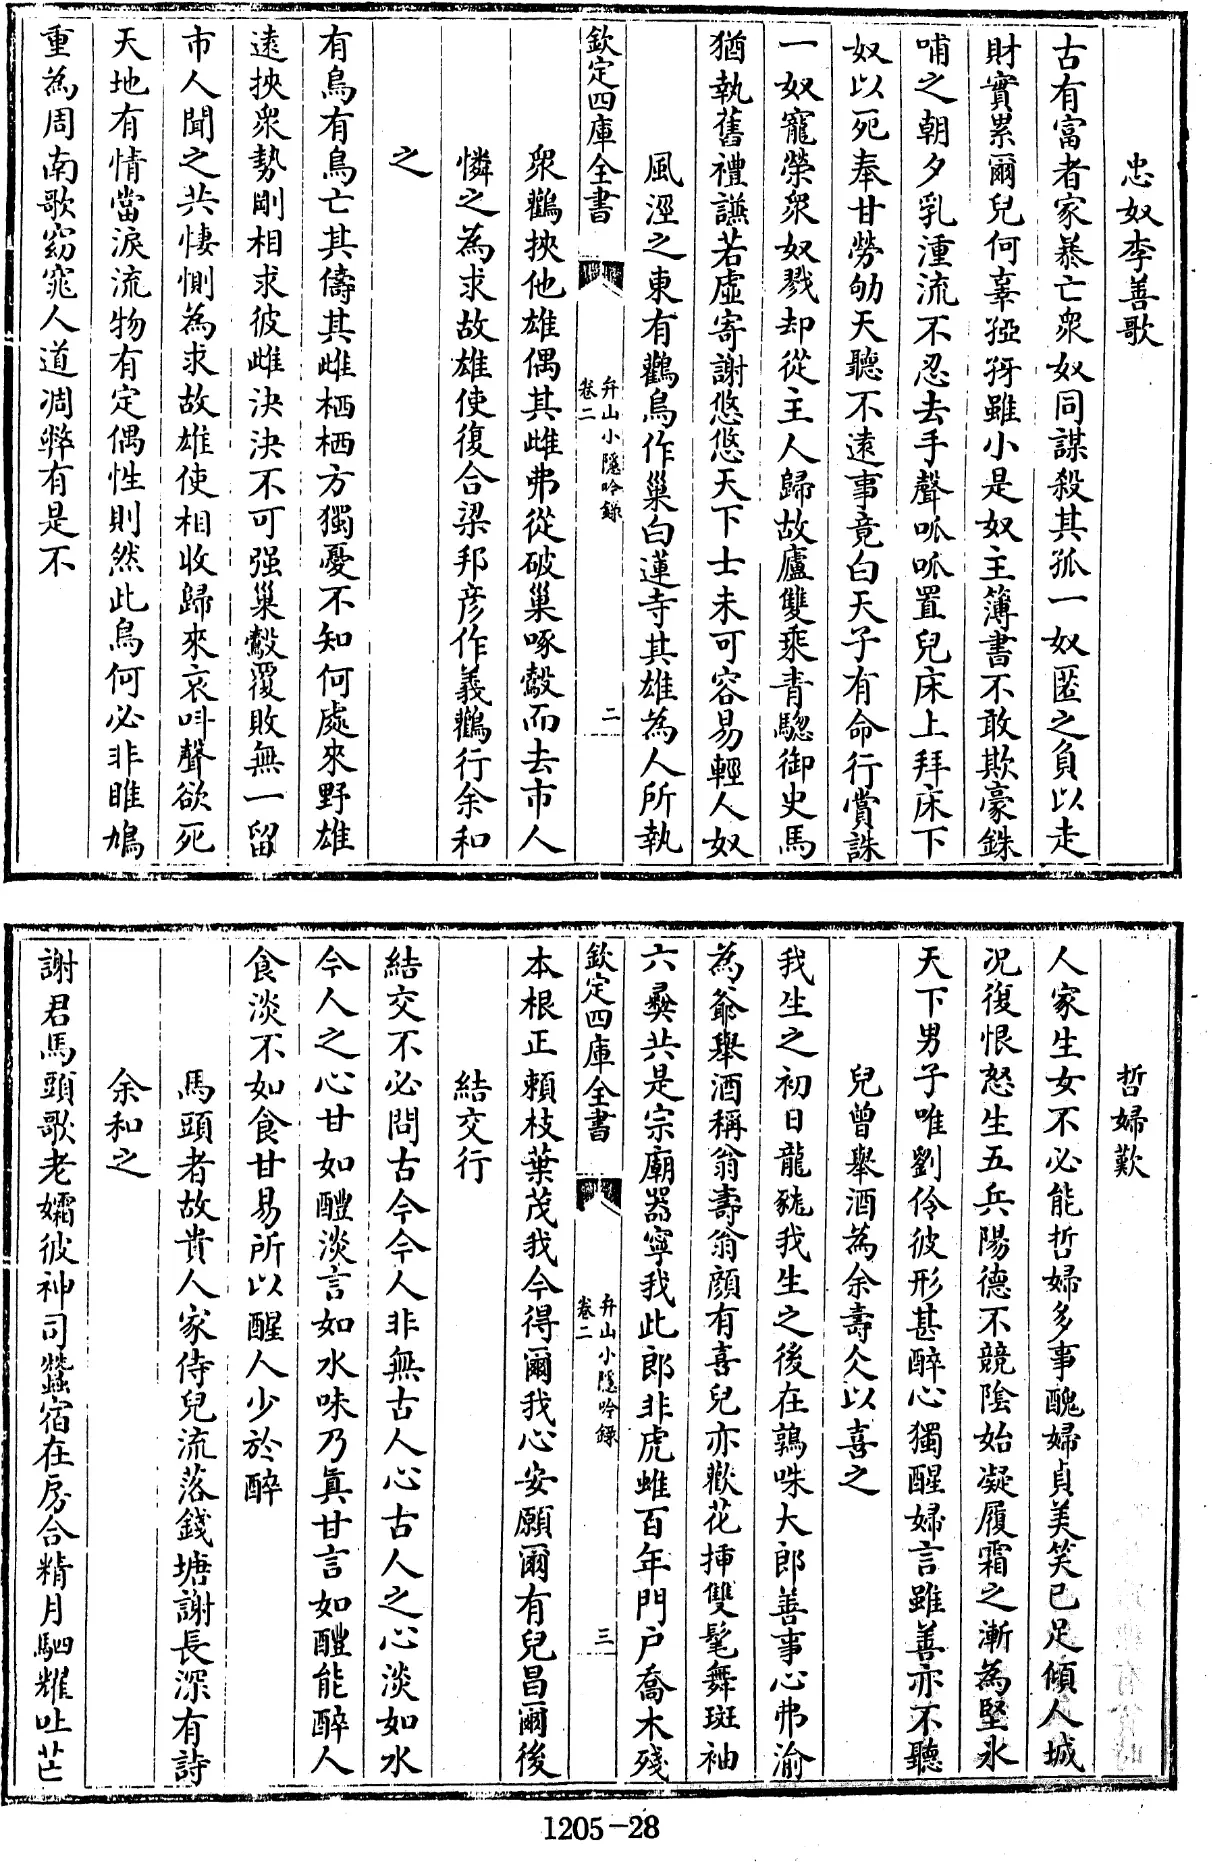 忠奴李善歌
古有富者家暴亡衆奴同謀殺其孤一奴匿之負以走
財實累爾兒何辜孩孺雖小是奴主簿書不敢欺豪銖
哺之朝夕乳湩流不忍去手聲呱呱置兒床上拜床下
奴以死奉甘勞劬天聽不遠事竟白天子有命行賞誅
一奴寵榮衆奴戮却從主人歸故廬雙乘青驄御史馬
猶執舊禮謙若虛寄謝悠悠天下士未可容易輕人奴
風涇之東有鸛鳥作巢白蓮寺其雄為人所執
欽定四庫全書
弁山小隱吟錄
卷二
二
衆鸛挾他雄偶其雌弗從破巢啄鷇而去市人
憐之為求故雄使復合梁邦彦作義鸛行余和
之
有鳥有鳥亡其儔其雌栖栖方獨憂不知何處來野雄
遠挾衆勢剛相求彼雌決決不可强巢鷇覆敗無一留
市人聞之共悽惻為求故雄使相收歸來哀叫聲欲死
天地有情當淚流物有定偶性則然此鳥何必非雎鳩
重為周南歌窈窕人道凋弊有是不
哲婦歎
人家生女不必能哲婦多事醜婦貞美笑已足傾人城
況復恨怒生五兵陽德不競陰始凝履霜之漸為堅氷
天下男子唯劉伶彼形甚醉心獨醒婦言雖善亦不聽
兒曾舉酒為余壽仌以喜之
我生之初日龍豵我生之後在鶉咮大郎善事心弗渝
為爺舉酒稱翁壽翁顔有喜兒亦歡花挿雙髦舞斑袖
六彞共是宗廟器寧我此郎非虎蜼百年門户喬木殘
欽定四庫全書
弁山小隱吟錄
卷二
三
本根正賴枝葉茂我今得爾我心安願爾有兒昌爾後
結交行
結交不必問古今今人非無古人心古人之心淡如水
今人之心甘如醴淡言如水味乃眞甘言如醴能醉人
食淡不如食甘易所以醒人少於醉
馬頭者故貴人家侍兒流落錢塘謝長深有詩
余和之
謝君馬頭歌老孀彼神司蠶宿在房合精月駟耀吐芒
1205-28